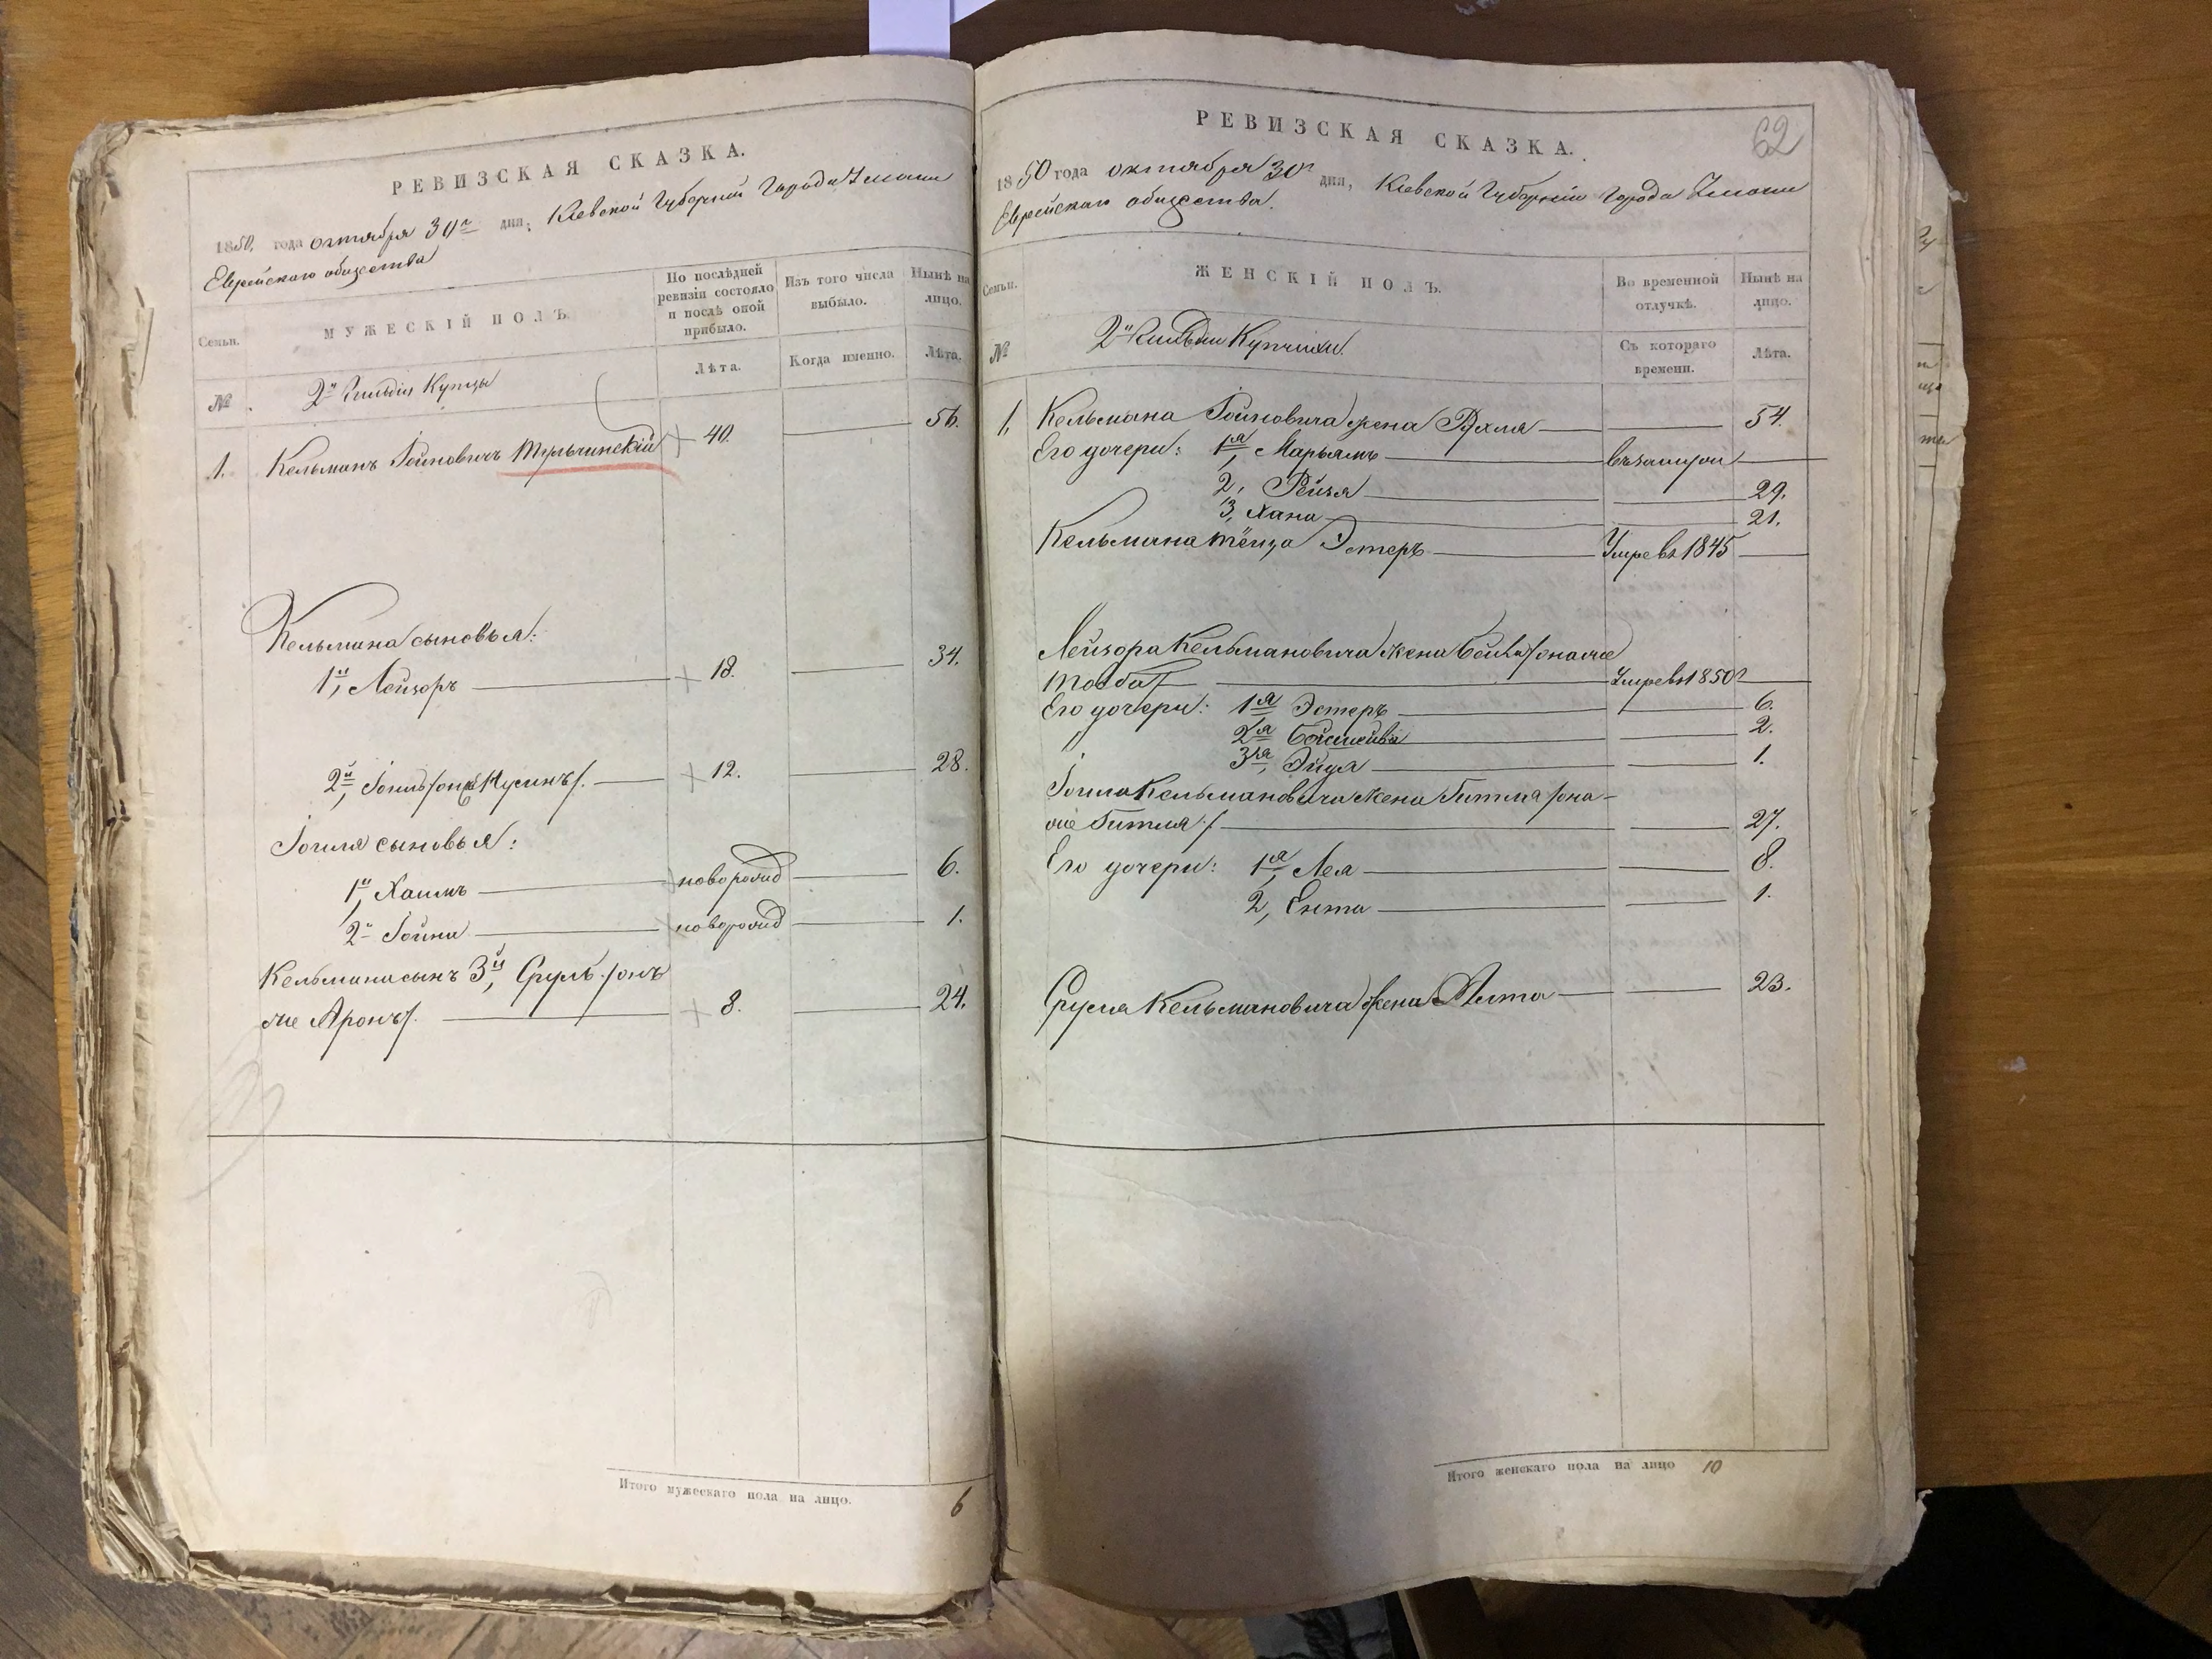 РЕВИЗСКАЯ СКАЗКА.
1850. года октября 30го дня, Кіевской Губерніи Города Умани
Еврейскаго общества
Семьи.
МУЖЕСКІЙ ПОЛЪ.
По послѣдней ревизіи состояло и послѣ оной прибыло.
Изъ того числа выбыло.
Нынѣ на лицо.
№
2й Гильдіи Купцы
Лѣта.
Когда именно.
Лѣта.
1. Кельманъ Іойновичъ Тульчинскій 40. 56.
Кельмана сыновья:
1й, Лейзоръ 18. 34.
2й, Іоиль /онъ же Нусинъ/. 12. 28.
Іоиля сыновья:
1й, Хаимъ новорожд 6.
2й Іойна новорожд 1.
Кельмана сынъ 3й, Сруль /онъ
же Аронъ/. 8. 24.
Итого мужескаго пола на лицо. 6
62
РЕВИЗСКАЯ СКАЗКА.
1850 года октября 30го дня, Кіевской Губерніи Города Умани
Еврейскаго общества.
Семьи.
ЖЕНСКІЙ ПОЛЪ.
Во временной отлучкѣ.
Нынѣ на лицо.
№
2й Гильдіи Купчихи.
Съ котораго времени.
Лѣта.
1. Кельмана Іойновича жена Рухля 54.
Его дочери: 1я, Марьямъ въ замуж
2, Рейзя 29.
3, Хана 21.
Кельмана тёща Эстеръ Умре въ 1845
Лейзора Кельмановича жена /она же
Умре въ 1850
Его дочери: 1я Эстеръ 6.
2я 2.
3я, Эйдя 1.
Іоиля Кельмановича жена Гитля /она
же Гитля/ 27.
Его дочери: 1я, Лея 8.
2, Ента 1.
Сруля Кельмановича жена 23.
Итого женскаго пола на лицо 10